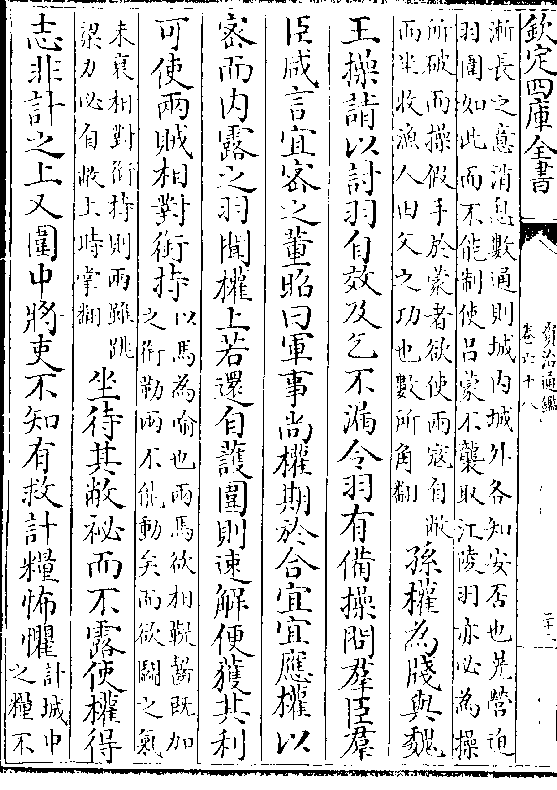 欽定四庫全書
資治通鑑
卷六十八
漸長之意消息數通則城内城外各知安否也晃營迫
羽圍如此而不能制使吕蒙不襲取江陵羽亦必為操
所破而操假手於蒙者欲使兩寇自敝
而坐收漁人田父之功也數所角翻
孫權為牋與魏
王操請以討羽自效及乞不漏令羽有備操問羣臣羣
臣咸言宜密之董昭曰軍事尚權期於合宜宜應權以
密而内露之羽聞權上若還自護圍則速解便獲其利
可使兩賊相對銜持
以馬為喻也兩馬欲相踶齧既加
之銜勒兩不能動矣而欲鬭之氣
未衰相對銜持則兩雖跳
梁力必自敝上時掌翻
坐待其敝祕而不露使權得
志非計之上又圍中將吏不知有救計糧怖懼
計城中
之糧不